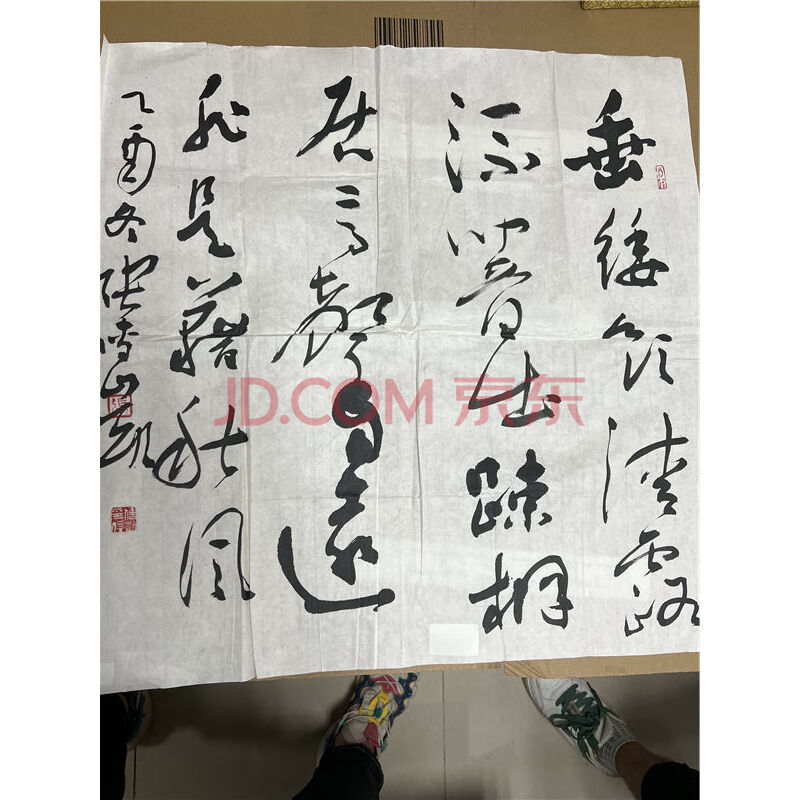 垂緌飲清露
流響出踈桐
居高聲自遠
非是藉秋風
乙酉冬張
JD.COM 京东